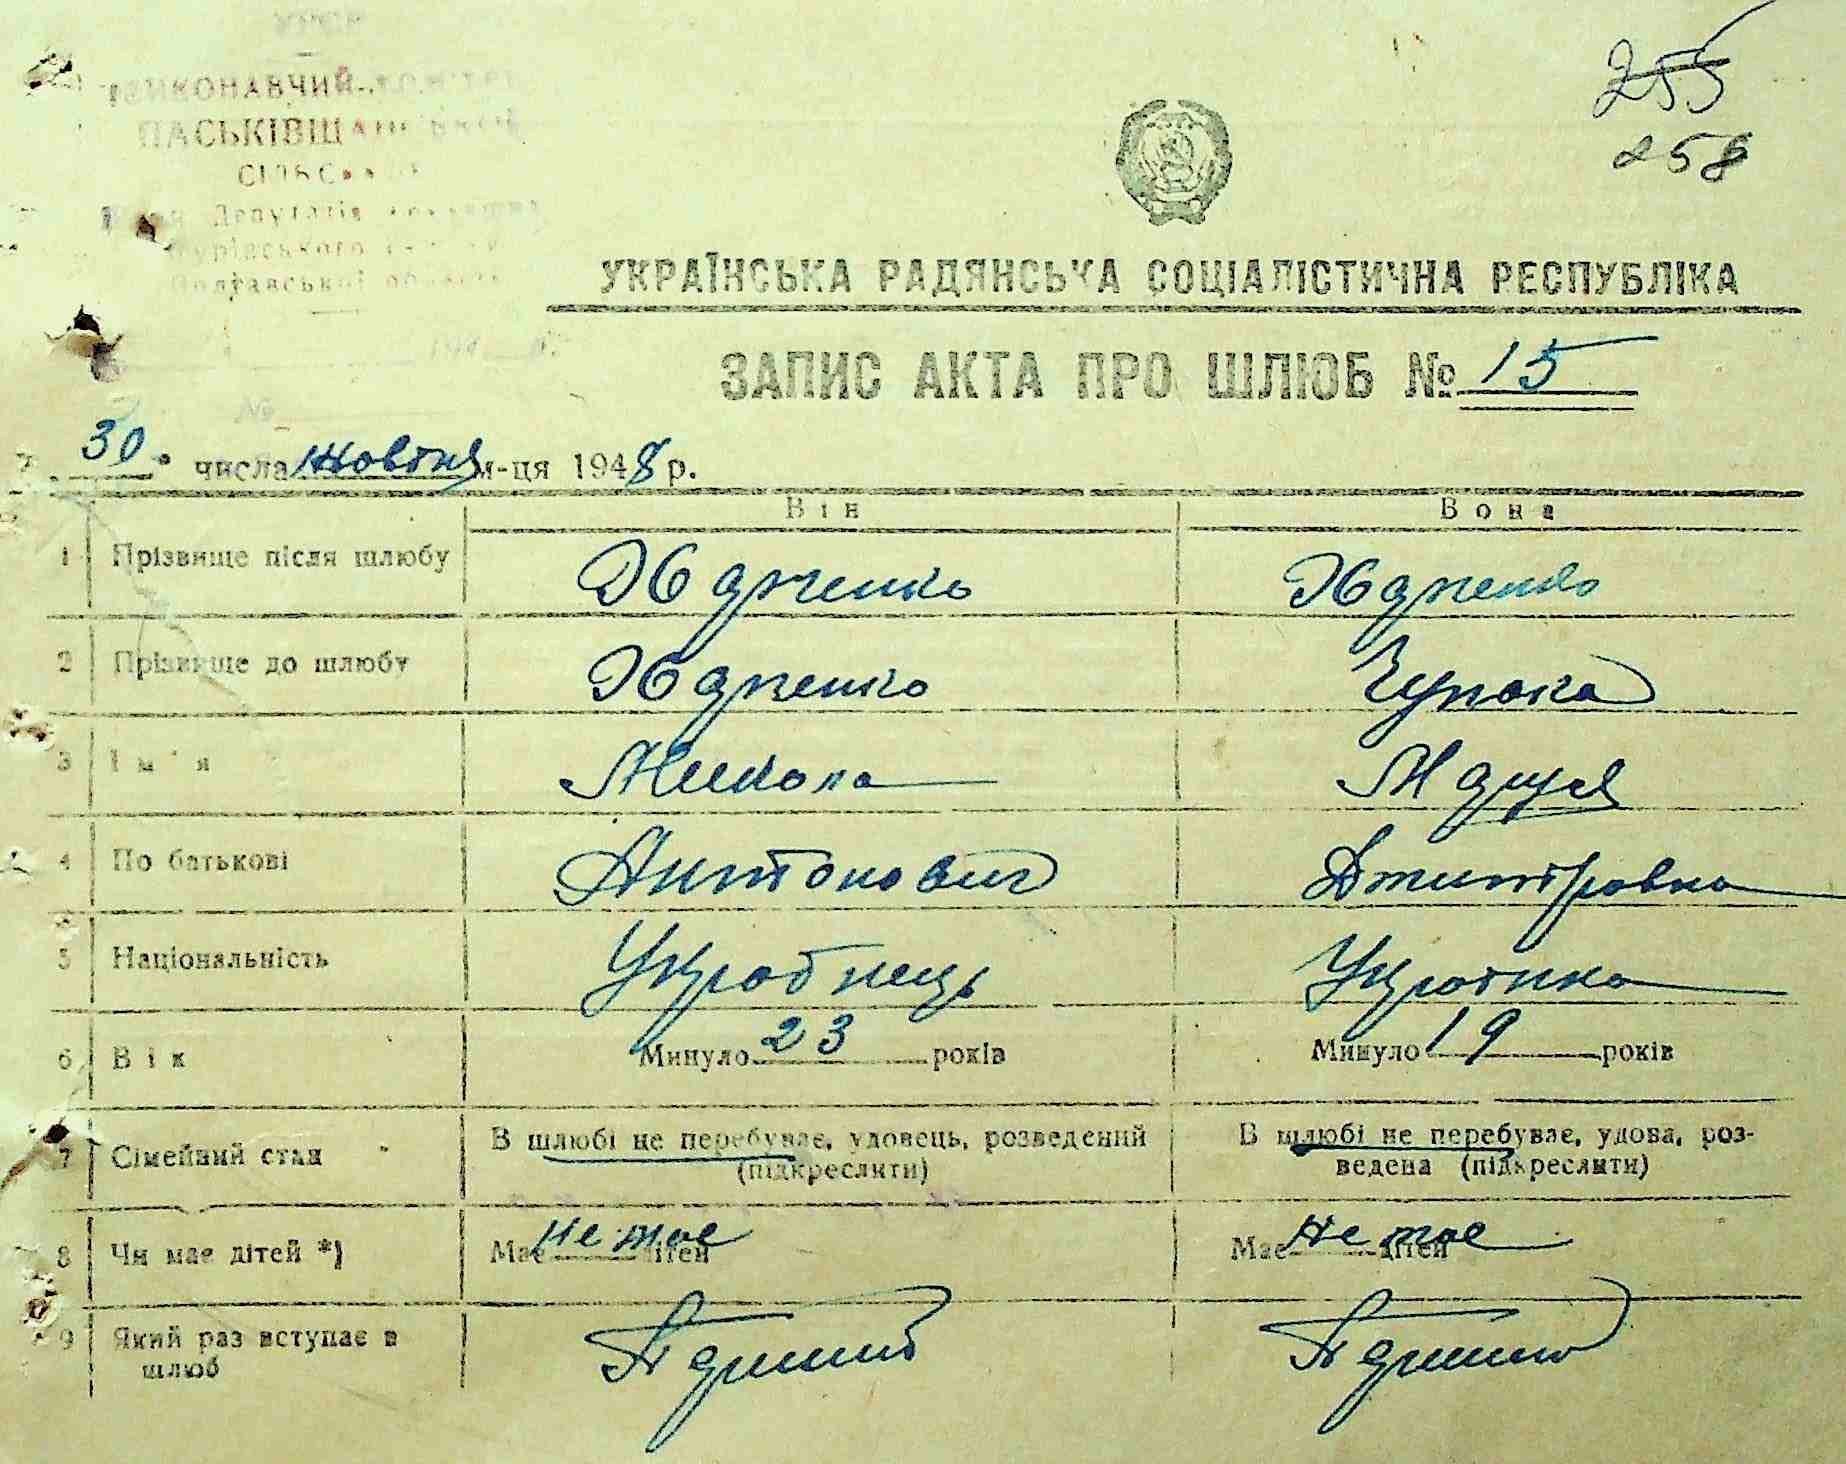 УРСР
ВИКОНАВЧИЙ КОМІТЕТ
ПАСЬКІВЩАНСЬКОЇ
СІЛЬСЬКОЇ
Ради Депутатів трудящих
Полтавської області
194
№
255
258
УКРАЇНСЬКА РАДЯНСЬКА СОЦІАЛІСТИЧНА РЕСПУБЛІКА
ЗАПИС АКТА ПРО ШЛЮБ № 15
30 числа Жовтня м-ця 1948 р.
Він Вона
1 Прізвище після шлюбу
2 Прізвище до шлюбу
3 Ім'я Микола Маруся
4 По батькові Антонович Дмитровна
5 Національність Українець Українка
6 Вік Минуло 23 років Минуло 19 років
7 Сімейний стан В шлюбі не перебуває, удовець, розведений В шлюбі не перебуває, удова, роз-
(підкреслити) ведена (підкреслити)
8 Чи має дітей *) Має Не має дітей Має Не має дітей
9 Який раз вступає в
шлюб